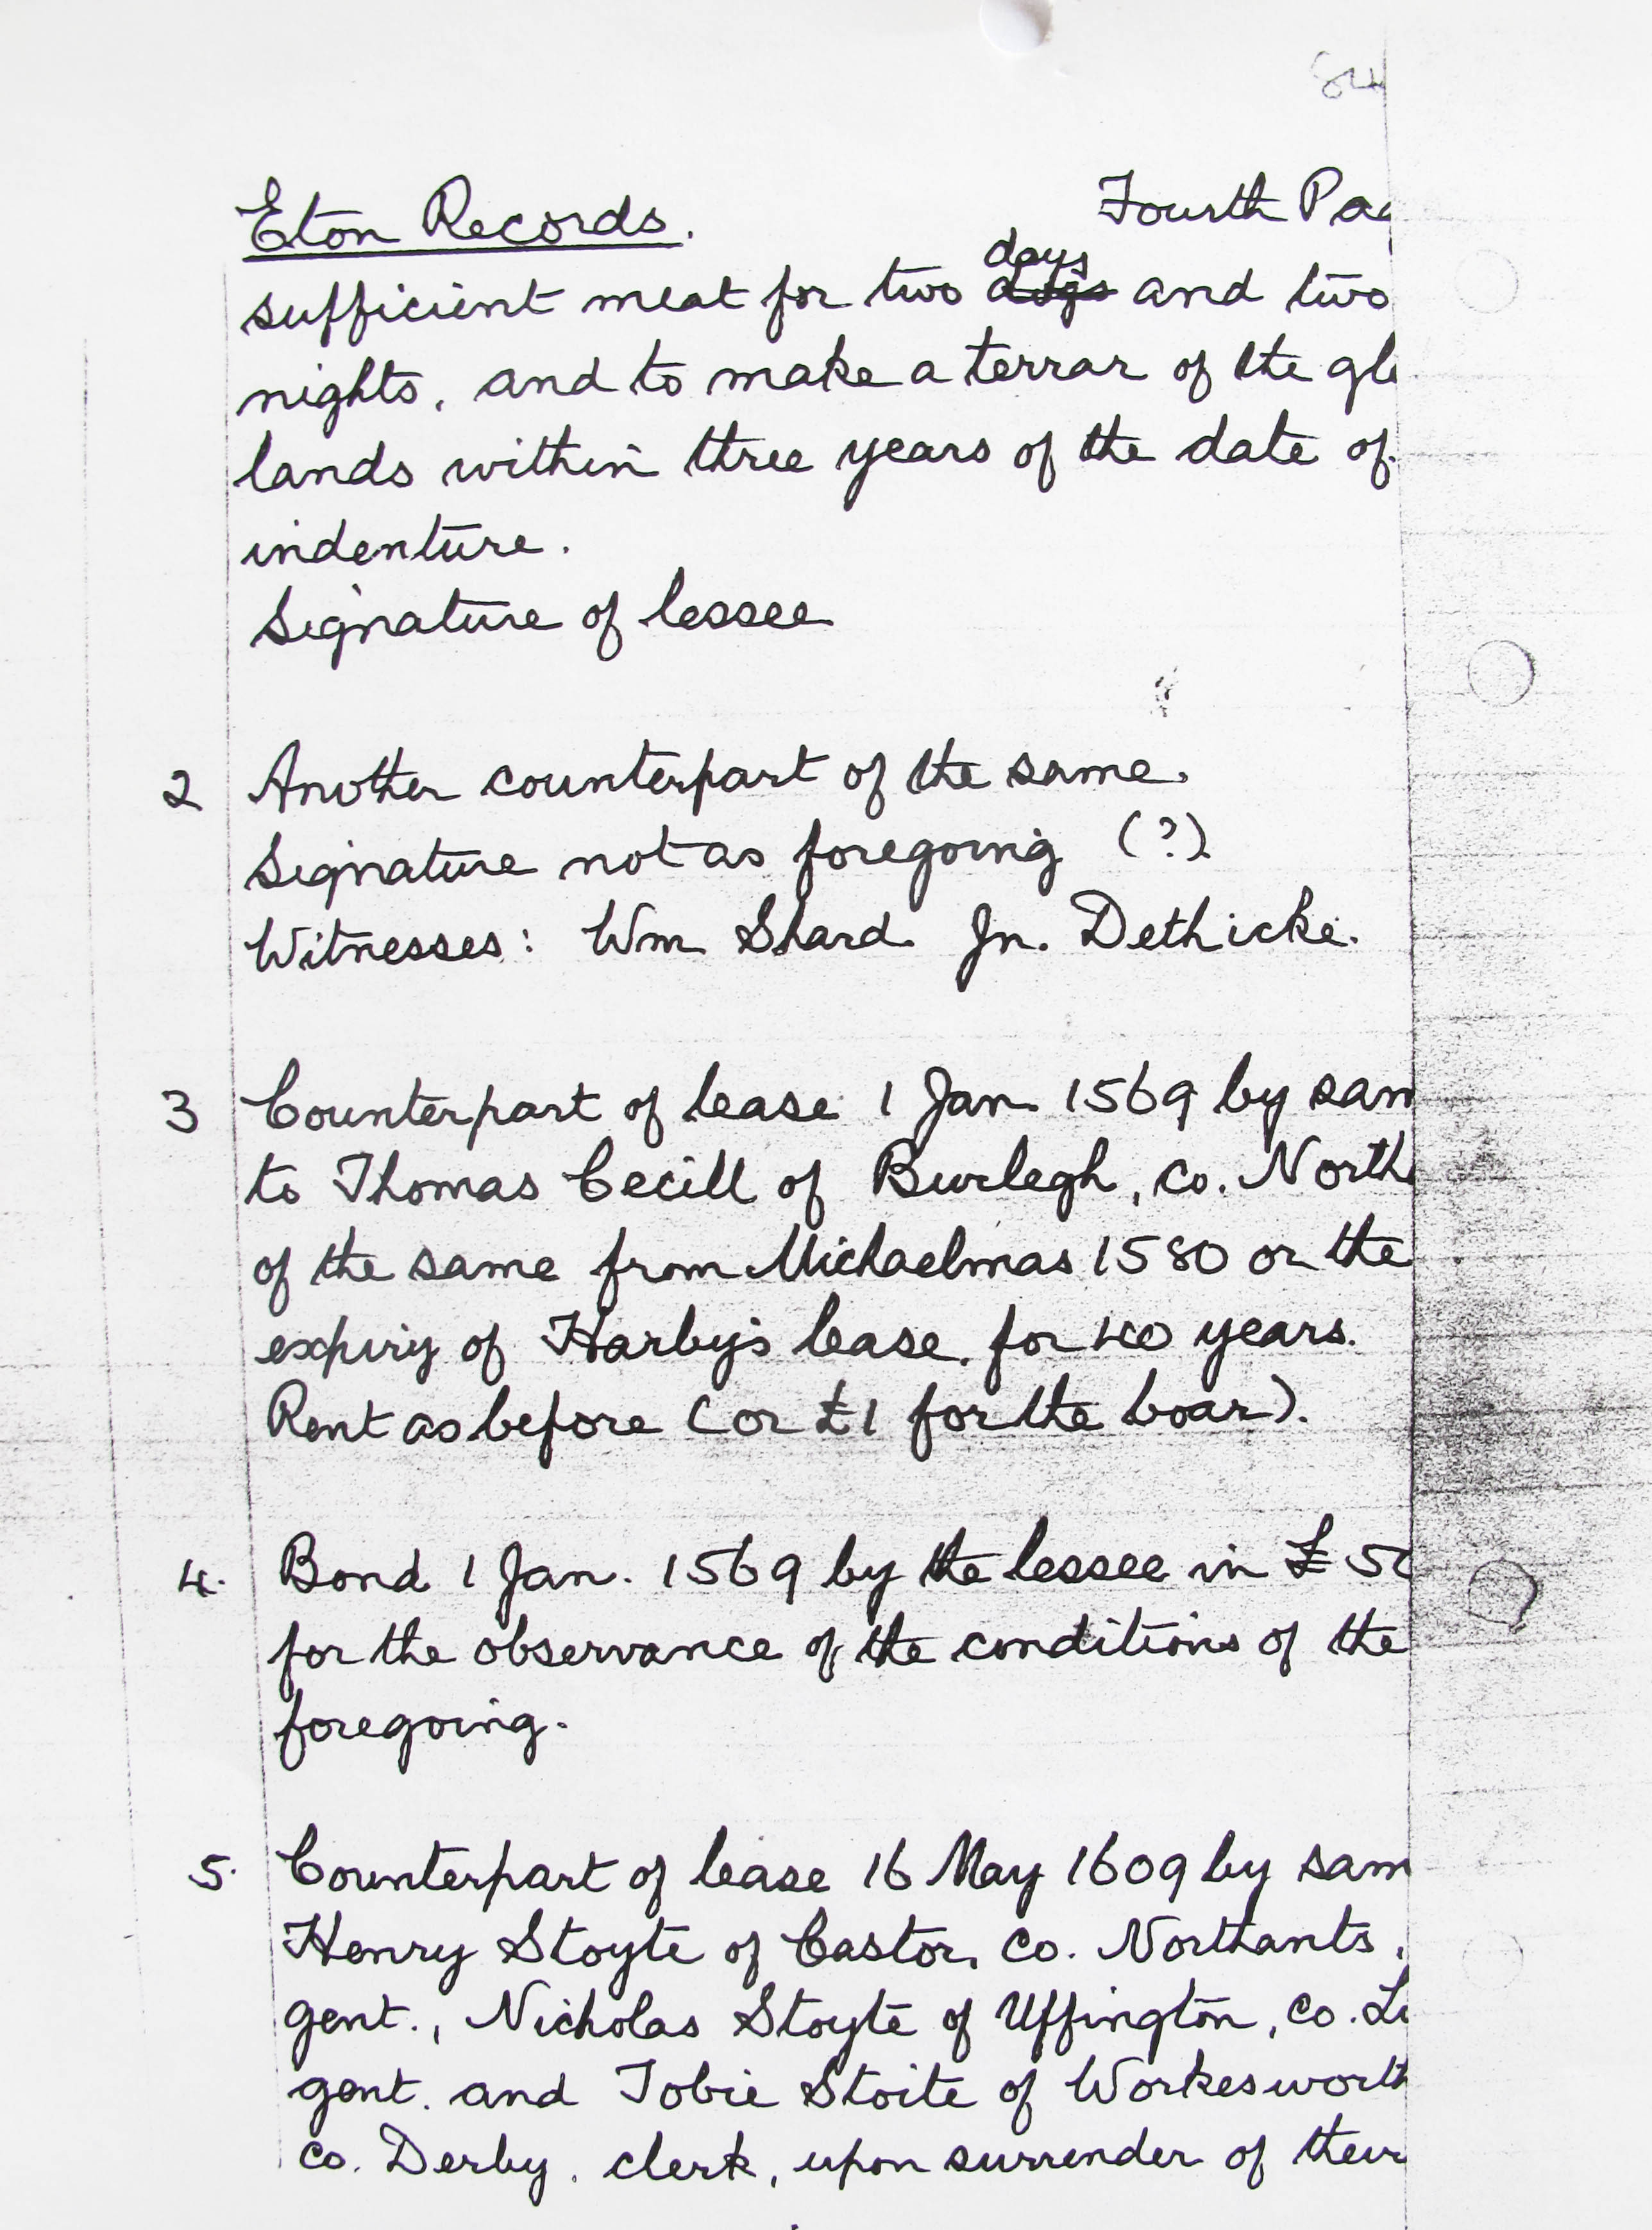 84
Eton Records. Fourth Pag
days
sufficient meat for two dogs and two
nights, and to make a terrar of the gle
lands within three years of the date of
indenture.
Signature of lessee
2 Another counterpart of the same.
Signature not as foregoing (?)
Witnesses: Wm Shard. Jn. Dethicke.
3 Counterpart of lease 1 Jan. 1569 by sam
to Thomas Cecill of Burlegh, Co. North
of the same from Michaelmas 1580 or the
expiry of Harby's lease, for 40 years.
Rent as before (or £1 for the boar).
4. Bond 1 Jan. 1569 by the lessee in £50
for the observance of the conditions of the
foregoing.
5. Counterpart of lease 16 May 1609 by sam
Henry Stoyte of Castor, Co. Northants,
gent., Nicholas Stoyte of Uffington, Co. Li
gent. and Tobie Stoite of Workesworth
Co. Derby, clerk, upon surrender of their